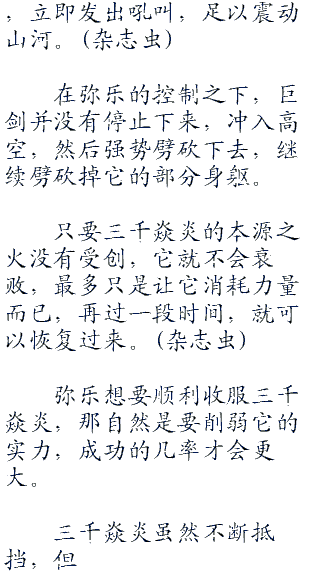 ，立即发出吼叫，足以震动
山河。(杂志虫)
在弥乐的控制之下，巨
剑并没有停止下来，冲入高
空，然后强势劈砍下去，继
续劈砍掉它的部分身躯。
只要三千焱炎的本源之
火没有受创，它就不会衰
败，最多只是让它消耗力量
而已，再过一段时间，就可
以恢复过来。(杂志虫)
弥乐想要顺利收服三千
焱炎，那自然是要削弱它的
实力，成功的几率才会更
大。
三千焱炎虽然不断抵
挡，但